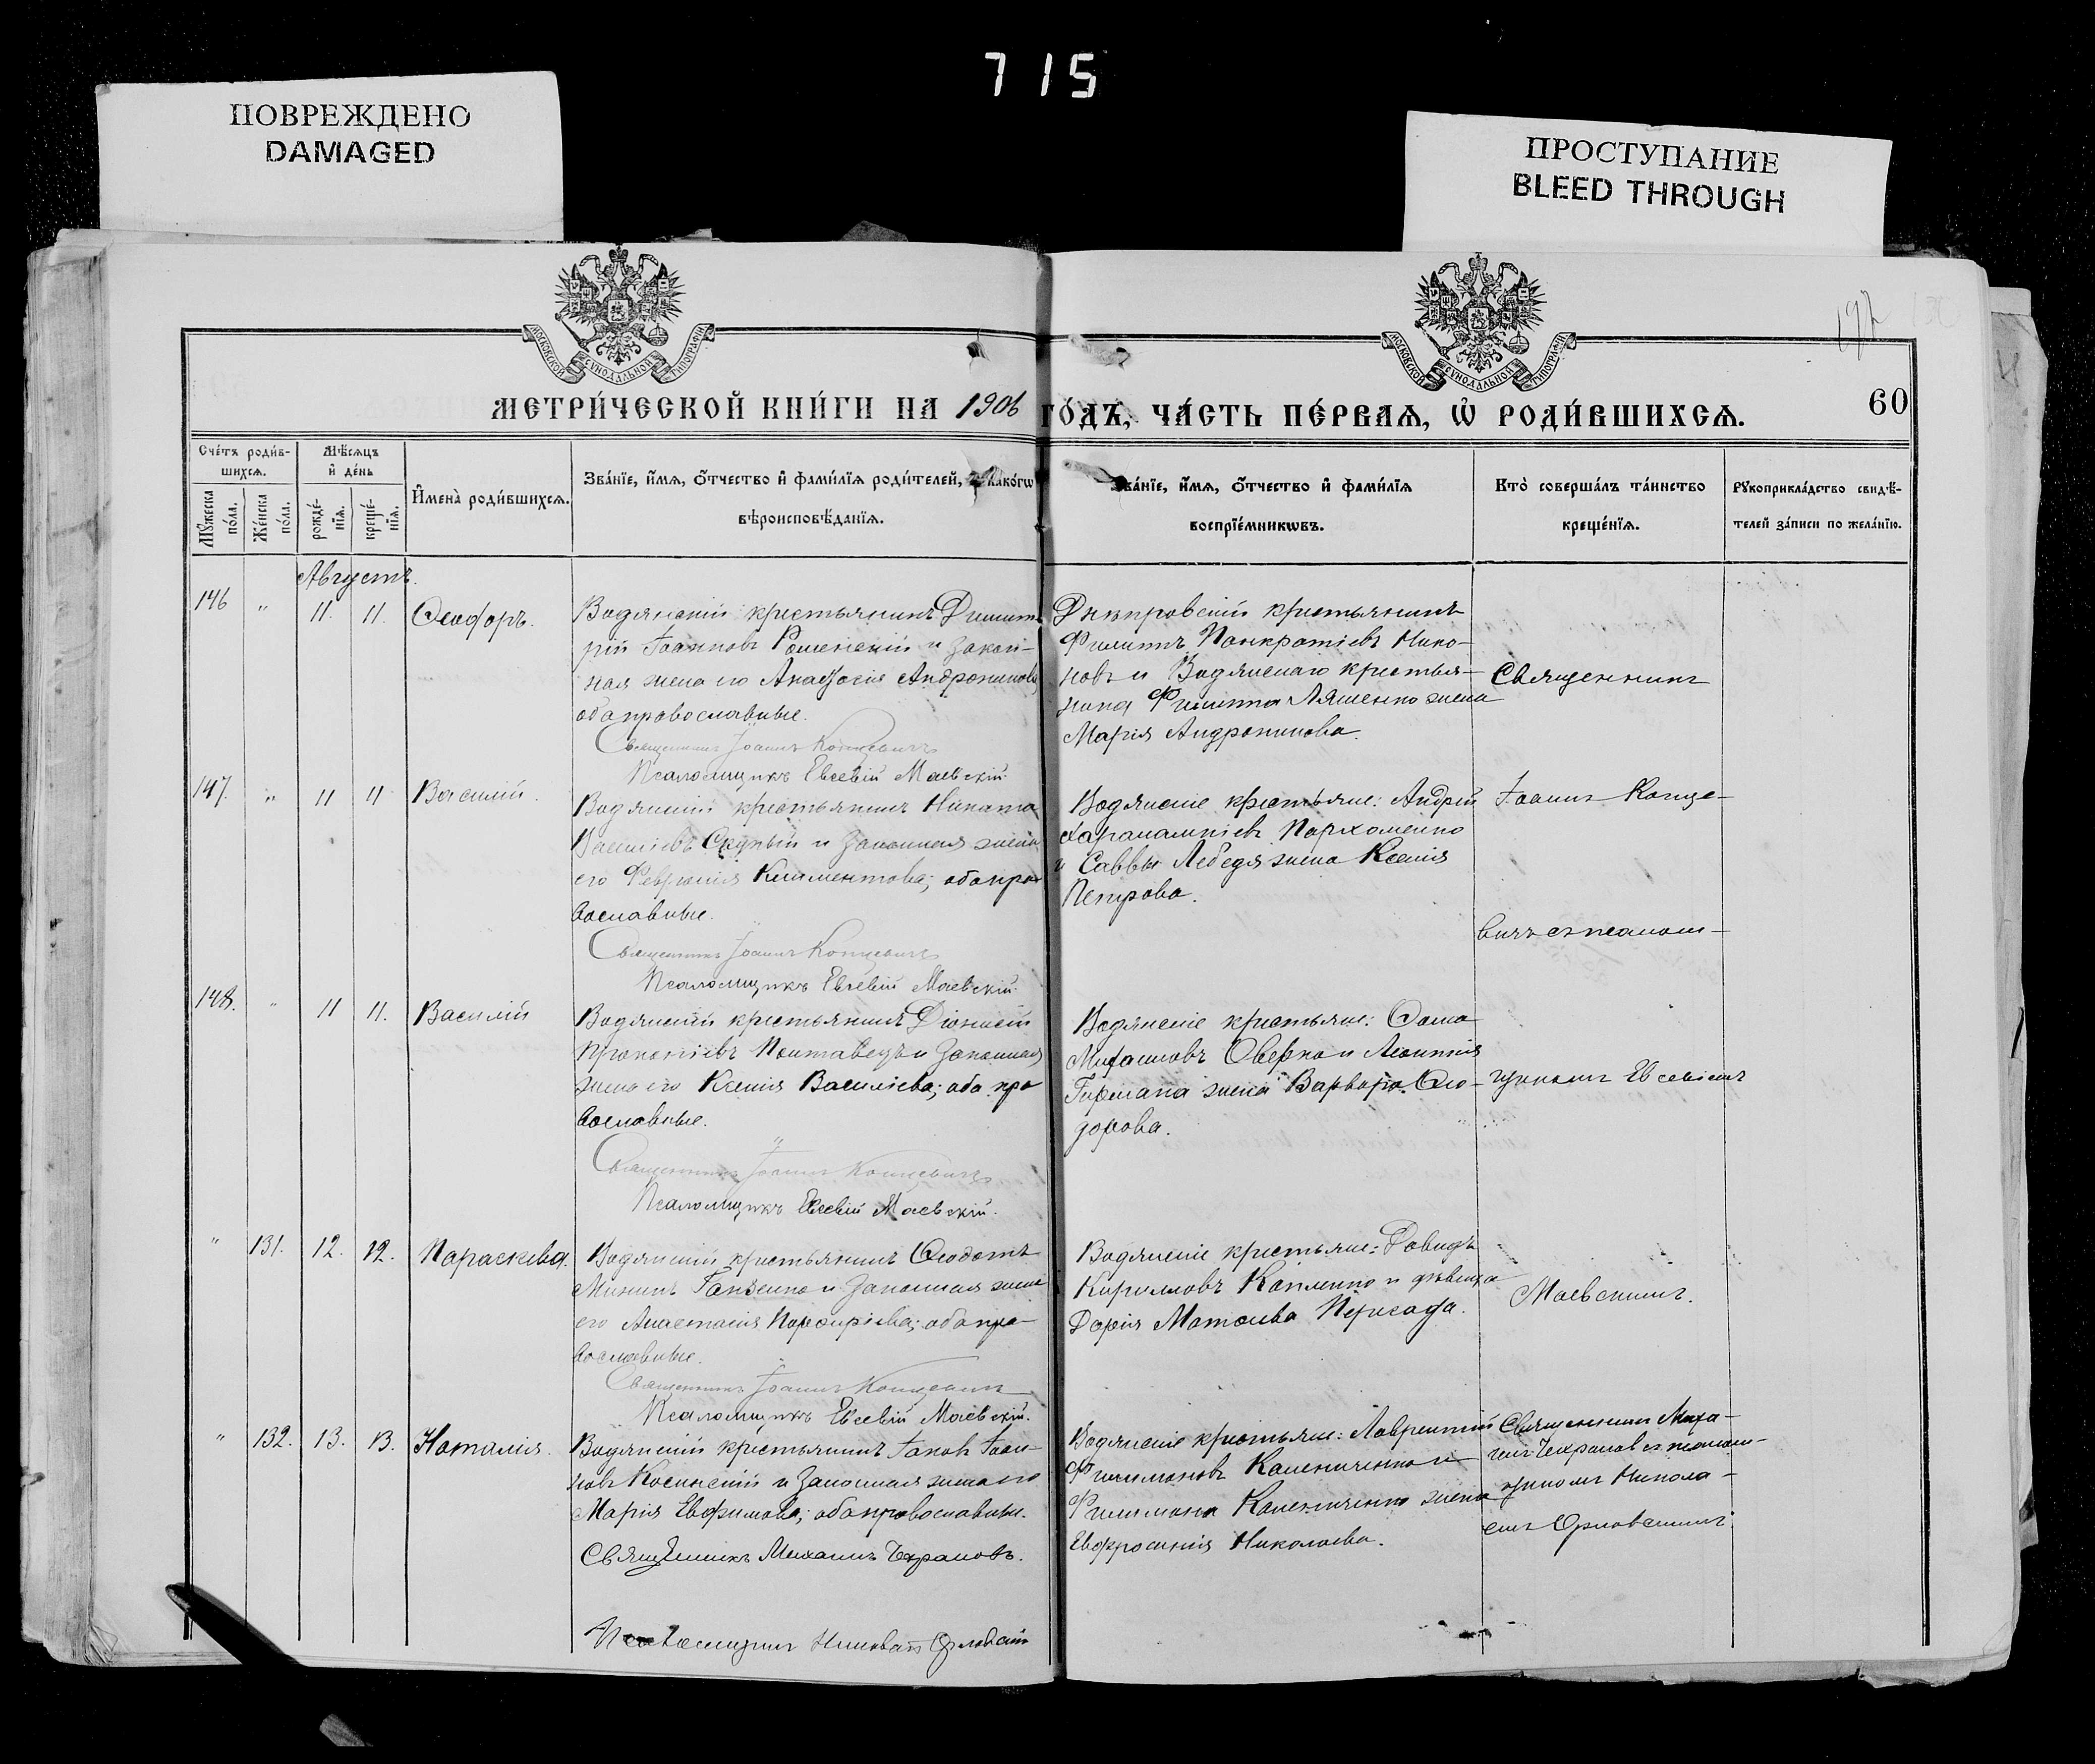 715
ПОВРЕЖДЕНО
DAMAGED
ПРОСТУПАНИЕ
BLEED THROUGH
МОСКОВСКОЙ СѴНОДАЛЬНОЙ ТИПОГРАФІИ
МОСКОВСКОЙ СѴНОДАЛЬНОЙ ТИПОГРАФІИ
МЕТРИ́ЧЕСКОЙ КНИ́ГИ НА 1906 ГО́ДЪ, ЧА́СТЬ ПЕ́РВАѦ, Ѡ҆ РОДИ́ВШИХСѦ.
60
Сче́тъ роди́в-
шихсѧ.
Мѣ́сѧцъ
и҆ де́нь
Мꙋ́жеска
по́ла.
Же́нска
по́ла.
рожде́-
нїѧ.
креще́-
нїѧ.
И҆мена̀ роди́вшихсѧ.
Зва́нїе, и҆́мѧ, ѻ҆́тчество и҆ фами́лїѧ роди́телей, и҆ како́гѡ
вѣроисповѣ́данїѧ.
Зва́нїе, и҆́мѧ, ѻ҆́тчество и҆ фами́лїѧ
воспрїе́мникѡвъ.
Кто̀ соверша́лъ та́инство
креще́нїѧ.
Рꙋкоприкла́дство свидѣ́-
телей за́писи по жела́нїю.
Августъ.
146 " 11. 11. Ѳеодоръ.
Водянскій крестьянинъ Димит-
рій Іоанновъ Роменскій и закон-
ная жена его Анастасія Андроникова,
оба православные.
Священникъ Іоаннъ Концевичъ
Псаломщикъ Евсевій Маевскій.
Днѣпровскій крестьянинъ
Филиппъ Панкратіевъ Нико-
новъ и Водянскаго крестья-
нина Филиппа Ляшенко жена
Марія Андроникова.
Священникъ
147. " 11 11 Василій.
Водянскій крестьянинъ Никита
Василіевъ Скупый и законная жена
его Февронія Климентова; оба пра-
вославные.
Священникъ Іоаннъ Концевичъ
Псаломщикъ Евсевій Маевскій.
Водянскіе крестьяне: Андрей
Харалампіевъ Пархоменко
и Саввы Лебедя жена Ксенія
Петрова.
Іоаннъ Конце-
вичъ съ псалом-
148. " 11 11. Василій
Водянскій крестьянинъ Діонисій
Прокопіевъ Полтавецъ и законная
жена его Ксенія Василіева; оба пра
вославные.
Священникъ Іоаннъ Концевичъ
Псаломщикъ Евсевій Маевскій.
Водянскіе крестьяне: Ѳома
Михаиловъ Оверко и Леонтія
жена Варвара Ѳео-
дорова.
щикомъ Евсевіемъ
" 131. 12. 12. Параскева.
Водянскій крестьянинъ Ѳеодотъ
Мининъ Ганженко и законная жена
его Анастасія Порфиріева; оба пра-
вославные.
Священникъ Іоаннъ Концевичъ
Псаломщикъ Евсевій Маевскій.
Водянскіе крестьяне: Давидъ
Кирилловъ Капленко и дѣвица
Дарія Матѳіева
Маевскимъ.
" 132. 13. 13. Наталія.
Водянскій крестьянинъ Іаковъ Іоан-
новъ Косинскій и законная жена его
Марія Евфимова; оба православные.
Священникъ Михаилъ Чехрановъ.
Псаломщикъ Николай Орловскій
Водянскіе крестьяне: Лаврентій
Филимоновъ Калениченко и
Филимона Калениченко жена
Евфросинія Николаева.
Священникъ Миха-
илъ Чехрановъ съ псалом-
щикомъ Никола-
емъ Орловскимъ.